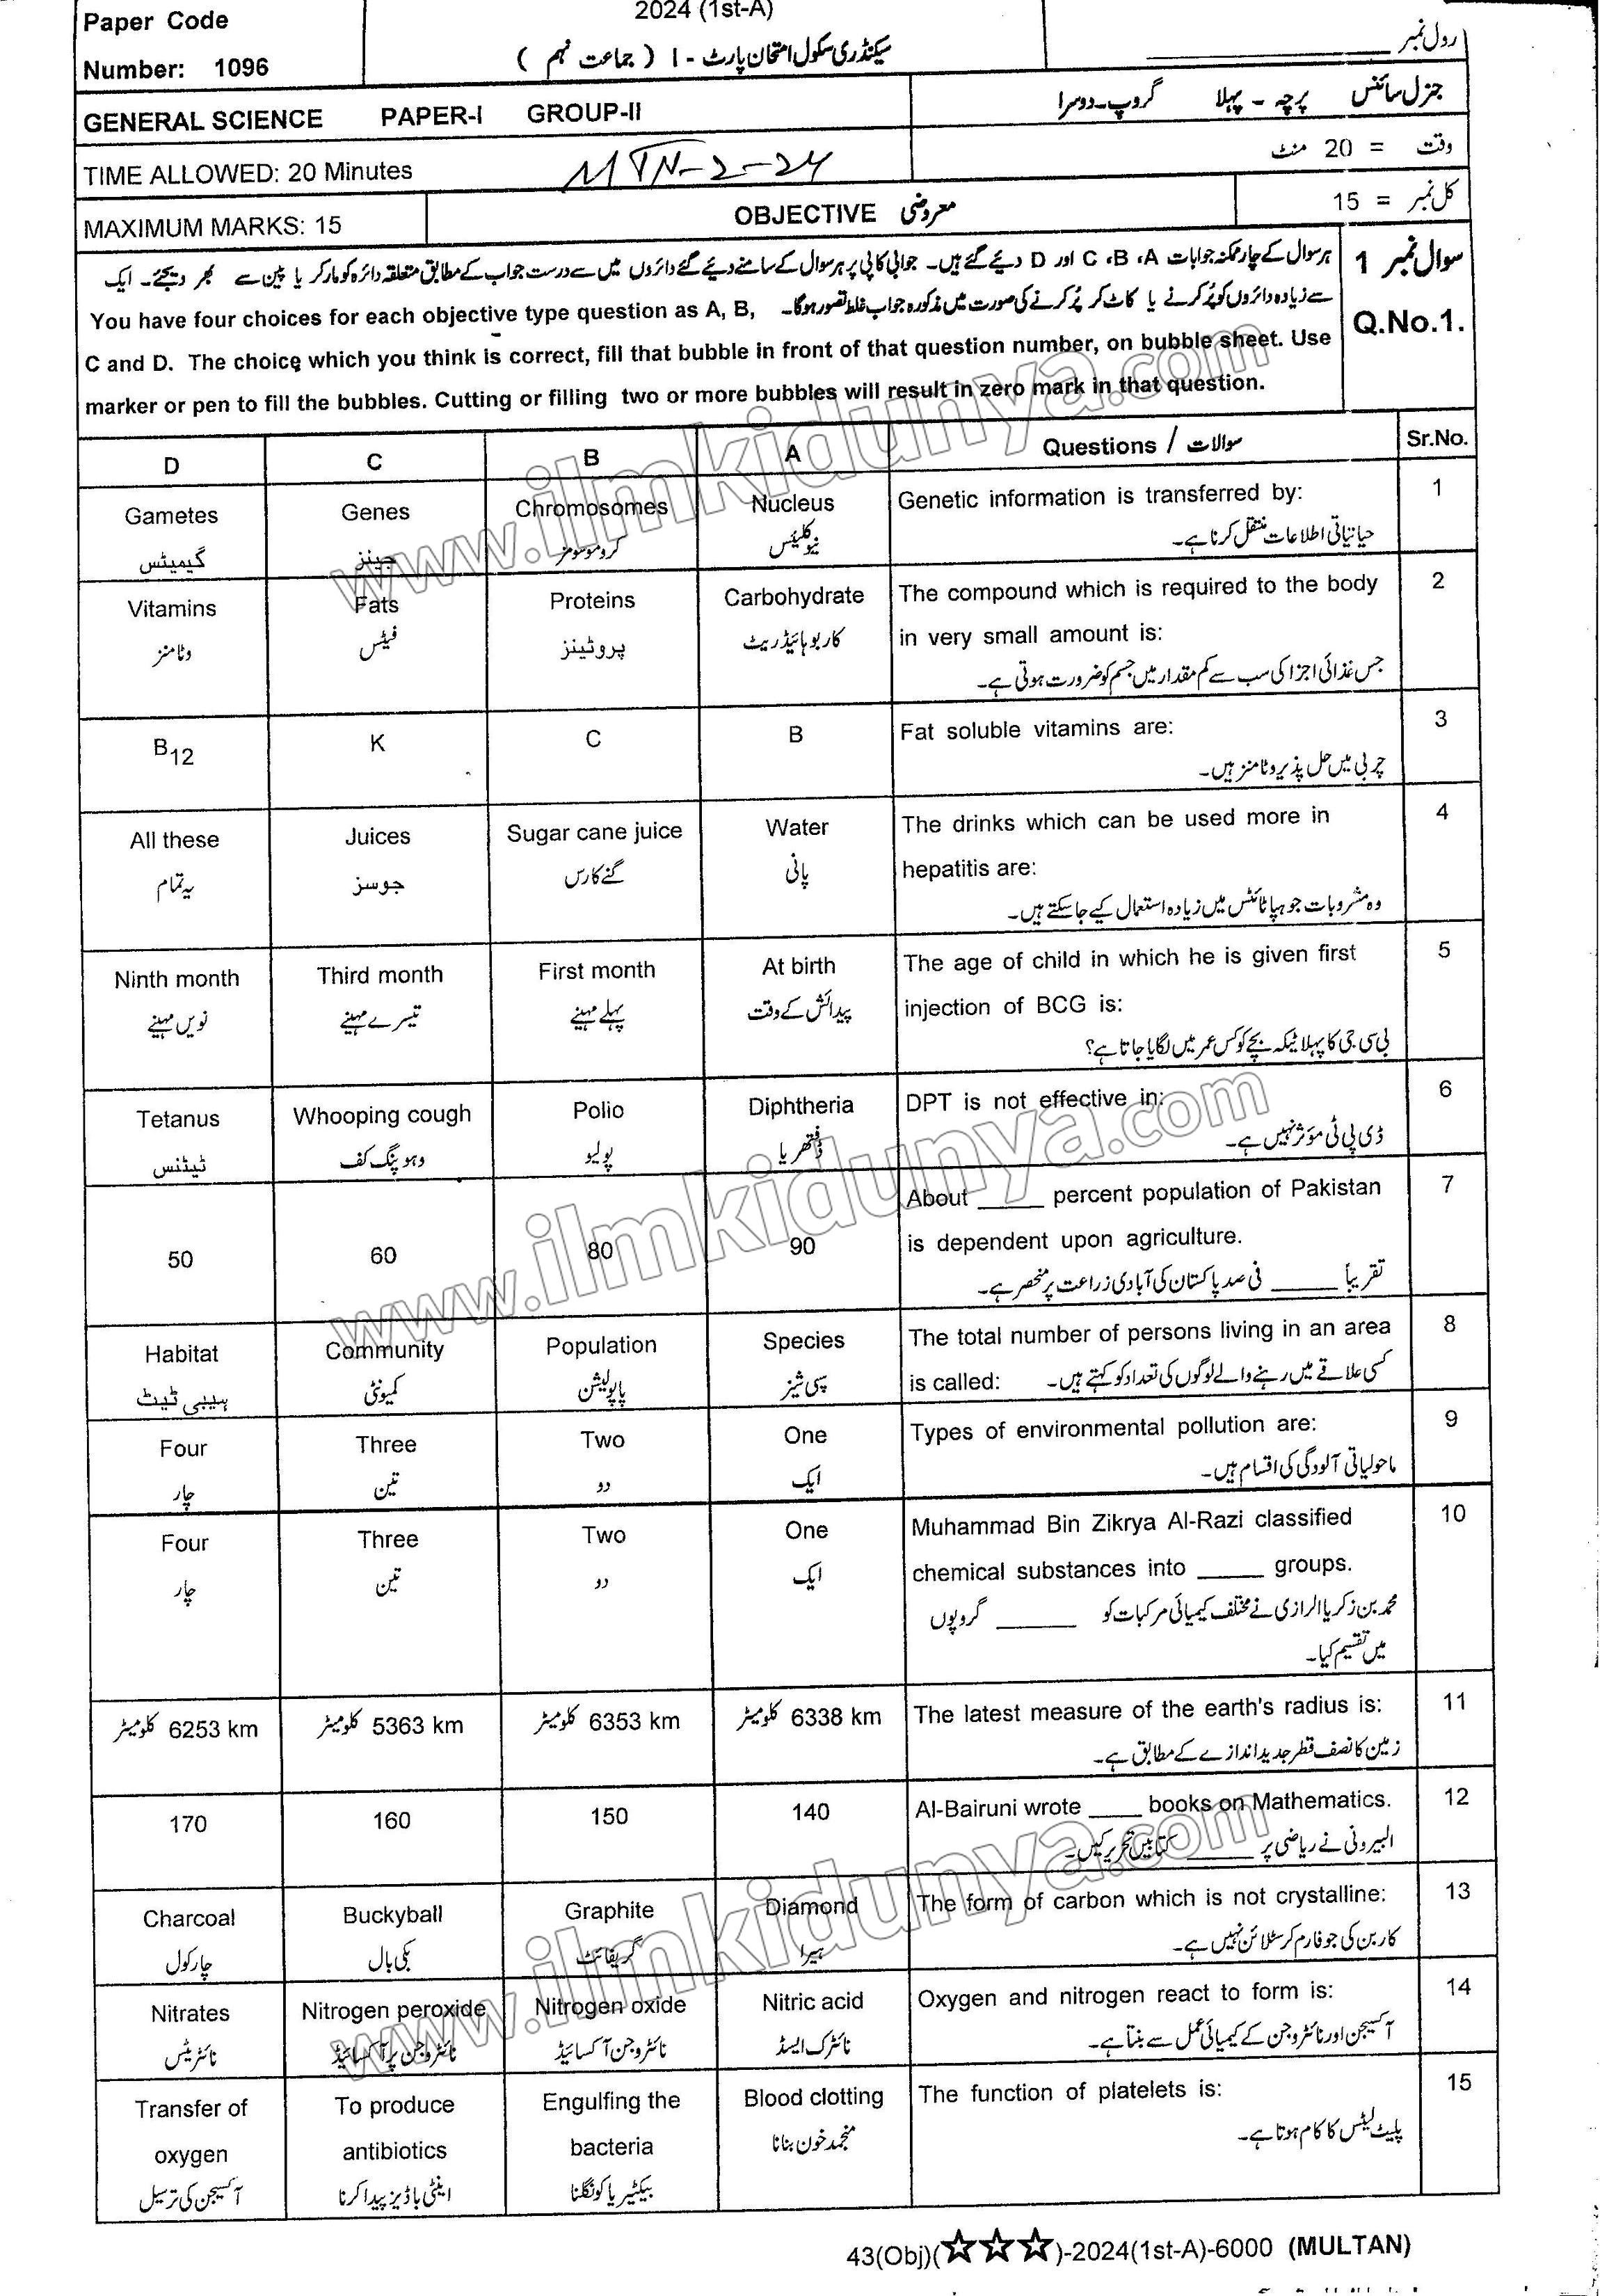 Paper Code
Number: 1096
2024 (1st-A)
سیکنڈری سکول امتحان پارٹ - I ( جماعت نہم )
رول نمبر
GENERAL SCIENCE PAPER-I GROUP-II
جنرل سائنس پرچہ - پہلا گروپ - دوسرا
TIME ALLOWED: 20 Minutes
MTN-2-24
وقت = 20 منٹ
MAXIMUM MARKS: 15
OBJECTIVE معروضی
کل نمبر = 15
سوال نمبر 1
Q.No.1.
ہر سوال کے چار ممکنہ جوابات A ، B ، C اور D دیئے گئے ہیں۔ جوابی کاپی پر ہر سوال کے سامنے دیئے گئے دائروں میں سے درست جواب کے مطابق متعلقہ دائرہ کو مارکر یا پین سے بھر دیجئے۔ ایک
سے زیادہ دائروں کو پُر کرنے یا کاٹ کر پُر کرنے کی صورت میں مذکورہ جواب غلط تصور ہوگا۔ You have four choices for each objective type question as A, B,
C and D. The choice which you think is correct, fill that bubble in front of that question number, on bubble sheet. Use
marker or pen to fill the bubbles. Cutting or filling two or more bubbles will result in zero mark in that question.
D C B A Questions / سوالات Sr.No.
Gametes Genes Chromosomes Nucleus Genetic information is transferred by: 1
گیمیٹس جینز کروموسومز نیوکلیئس حیاتیاتی اطلاعات منتقل کرنا ہے۔
Vitamins Fats Proteins Carbohydrate The compound which is required to the body 2
in very small amount is:
وٹامنز فیٹس پروٹینز کاربوہائیڈریٹ
جس غذائی اجزا کی سب سے کم مقدار میں جسم کو ضرورت ہوتی ہے۔
B12 K C B Fat soluble vitamins are: 3
چربی میں حل پذیر وٹامنز ہیں۔
All these Juices Sugar cane juice Water The drinks which can be used more in 4
hepatitis are:
یہ تمام جوسز گنے کا رس پانی
وہ مشروبات جو ہپاٹائٹس میں زیادہ استعمال کیے جا سکتے ہیں۔
Ninth month Third month First month At birth The age of child in which he is given first 5
injection of BCG is:
نویں مہینے تیسرے مہینے پہلے مہینے پیدائش کے وقت
بی سی جی کا پہلا ٹیکہ بچے کو کس عمر میں لگایا جاتا ہے؟
Tetanus Whooping cough Polio Diphtheria DPT is not effective in: 6
ٹیٹنس وہوپنگ کف پولیو ڈفتھریا ڈی پی ٹی مؤثر نہیں ہے۔
About _____ percent population of Pakistan 7
is dependent upon agriculture.
50 60 80 90
تقریباً _____ فی صد پاکستان کی آبادی زراعت پر منحصر ہے۔
Habitat Community Population Species The total number of persons living in an area 8
is called: کسی علاقے میں رہنے والے لوگوں کی تعداد کو کہتے ہیں۔
ہیبی ٹیٹ کمیونٹی پاپولیشن سپی شیز
Four Three Two One Types of environmental pollution are: 9
چار تین دو ایک ماحولیاتی آلودگی کی اقسام ہیں۔
Four Three Two One Muhammad Bin Zikrya Al-Razi classified 10
chemical substances into _____ groups.
چار تین دو ایک
محمد بن زکریا الرازی نے مختلف کیمیائی مرکبات کو _____ گروپوں
میں تقسیم کیا۔
6253 km کلومیٹر 5363 km کلومیٹر 6353 km کلومیٹر 6338 km کلومیٹر The latest measure of the earth's radius is: 11
زمین کا نصف قطر جدید اندازے کے مطابق ہے۔
170 160 150 140 Al-Bairuni wrote ____ books on Mathematics. 12
البیرونی نے ریاضی پر _____ کتابیں تحریر کیں۔
Charcoal Buckyball Graphite Diamond The form of carbon which is not crystalline: 13
چارکول بکی بال گریفائٹ ہیرا کاربن کی جو فارم کرسٹلائن نہیں ہے۔
Nitrates Nitrogen peroxide Nitrogen oxide Nitric acid Oxygen and nitrogen react to form is: 14
نائٹریٹس نائٹروجن پرآکسائیڈ نائٹروجن آکسائیڈ نائٹرک ایسڈ آکسیجن اور نائٹروجن کے کیمیائی عمل سے بنتا ہے۔
Transfer of To produce Engulfing the Blood clotting The function of platelets is: 15
oxygen antibiotics bacteria
آکسیجن کی ترسیل اینٹی باڈیز پیدا کرنا بیکٹیریا کو نگلنا منجمد خون بنانا پلیٹ لیٹس کا کام ہوتا ہے۔
43(Obj)(☆☆☆)-2024(1st-A)-6000 (MULTAN)
www.ilmkidunya.com
www.ilmkidunya.com
www.ilmkidunya.com